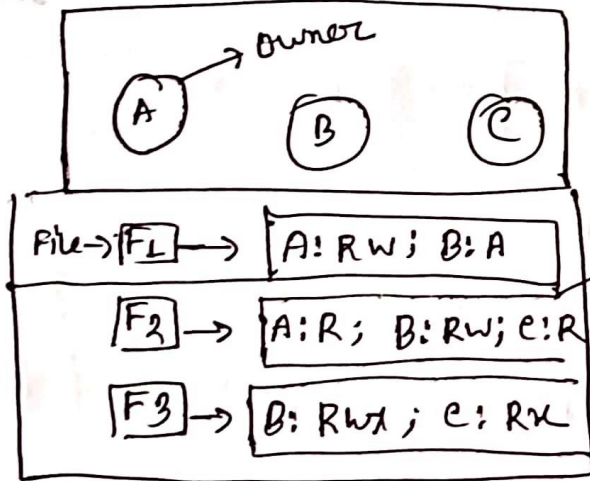 owner
A B C
File → F1 → A: RW; B: A
F2 → A: R; B: RW; C: R
F3 → B: RWX; C: RX